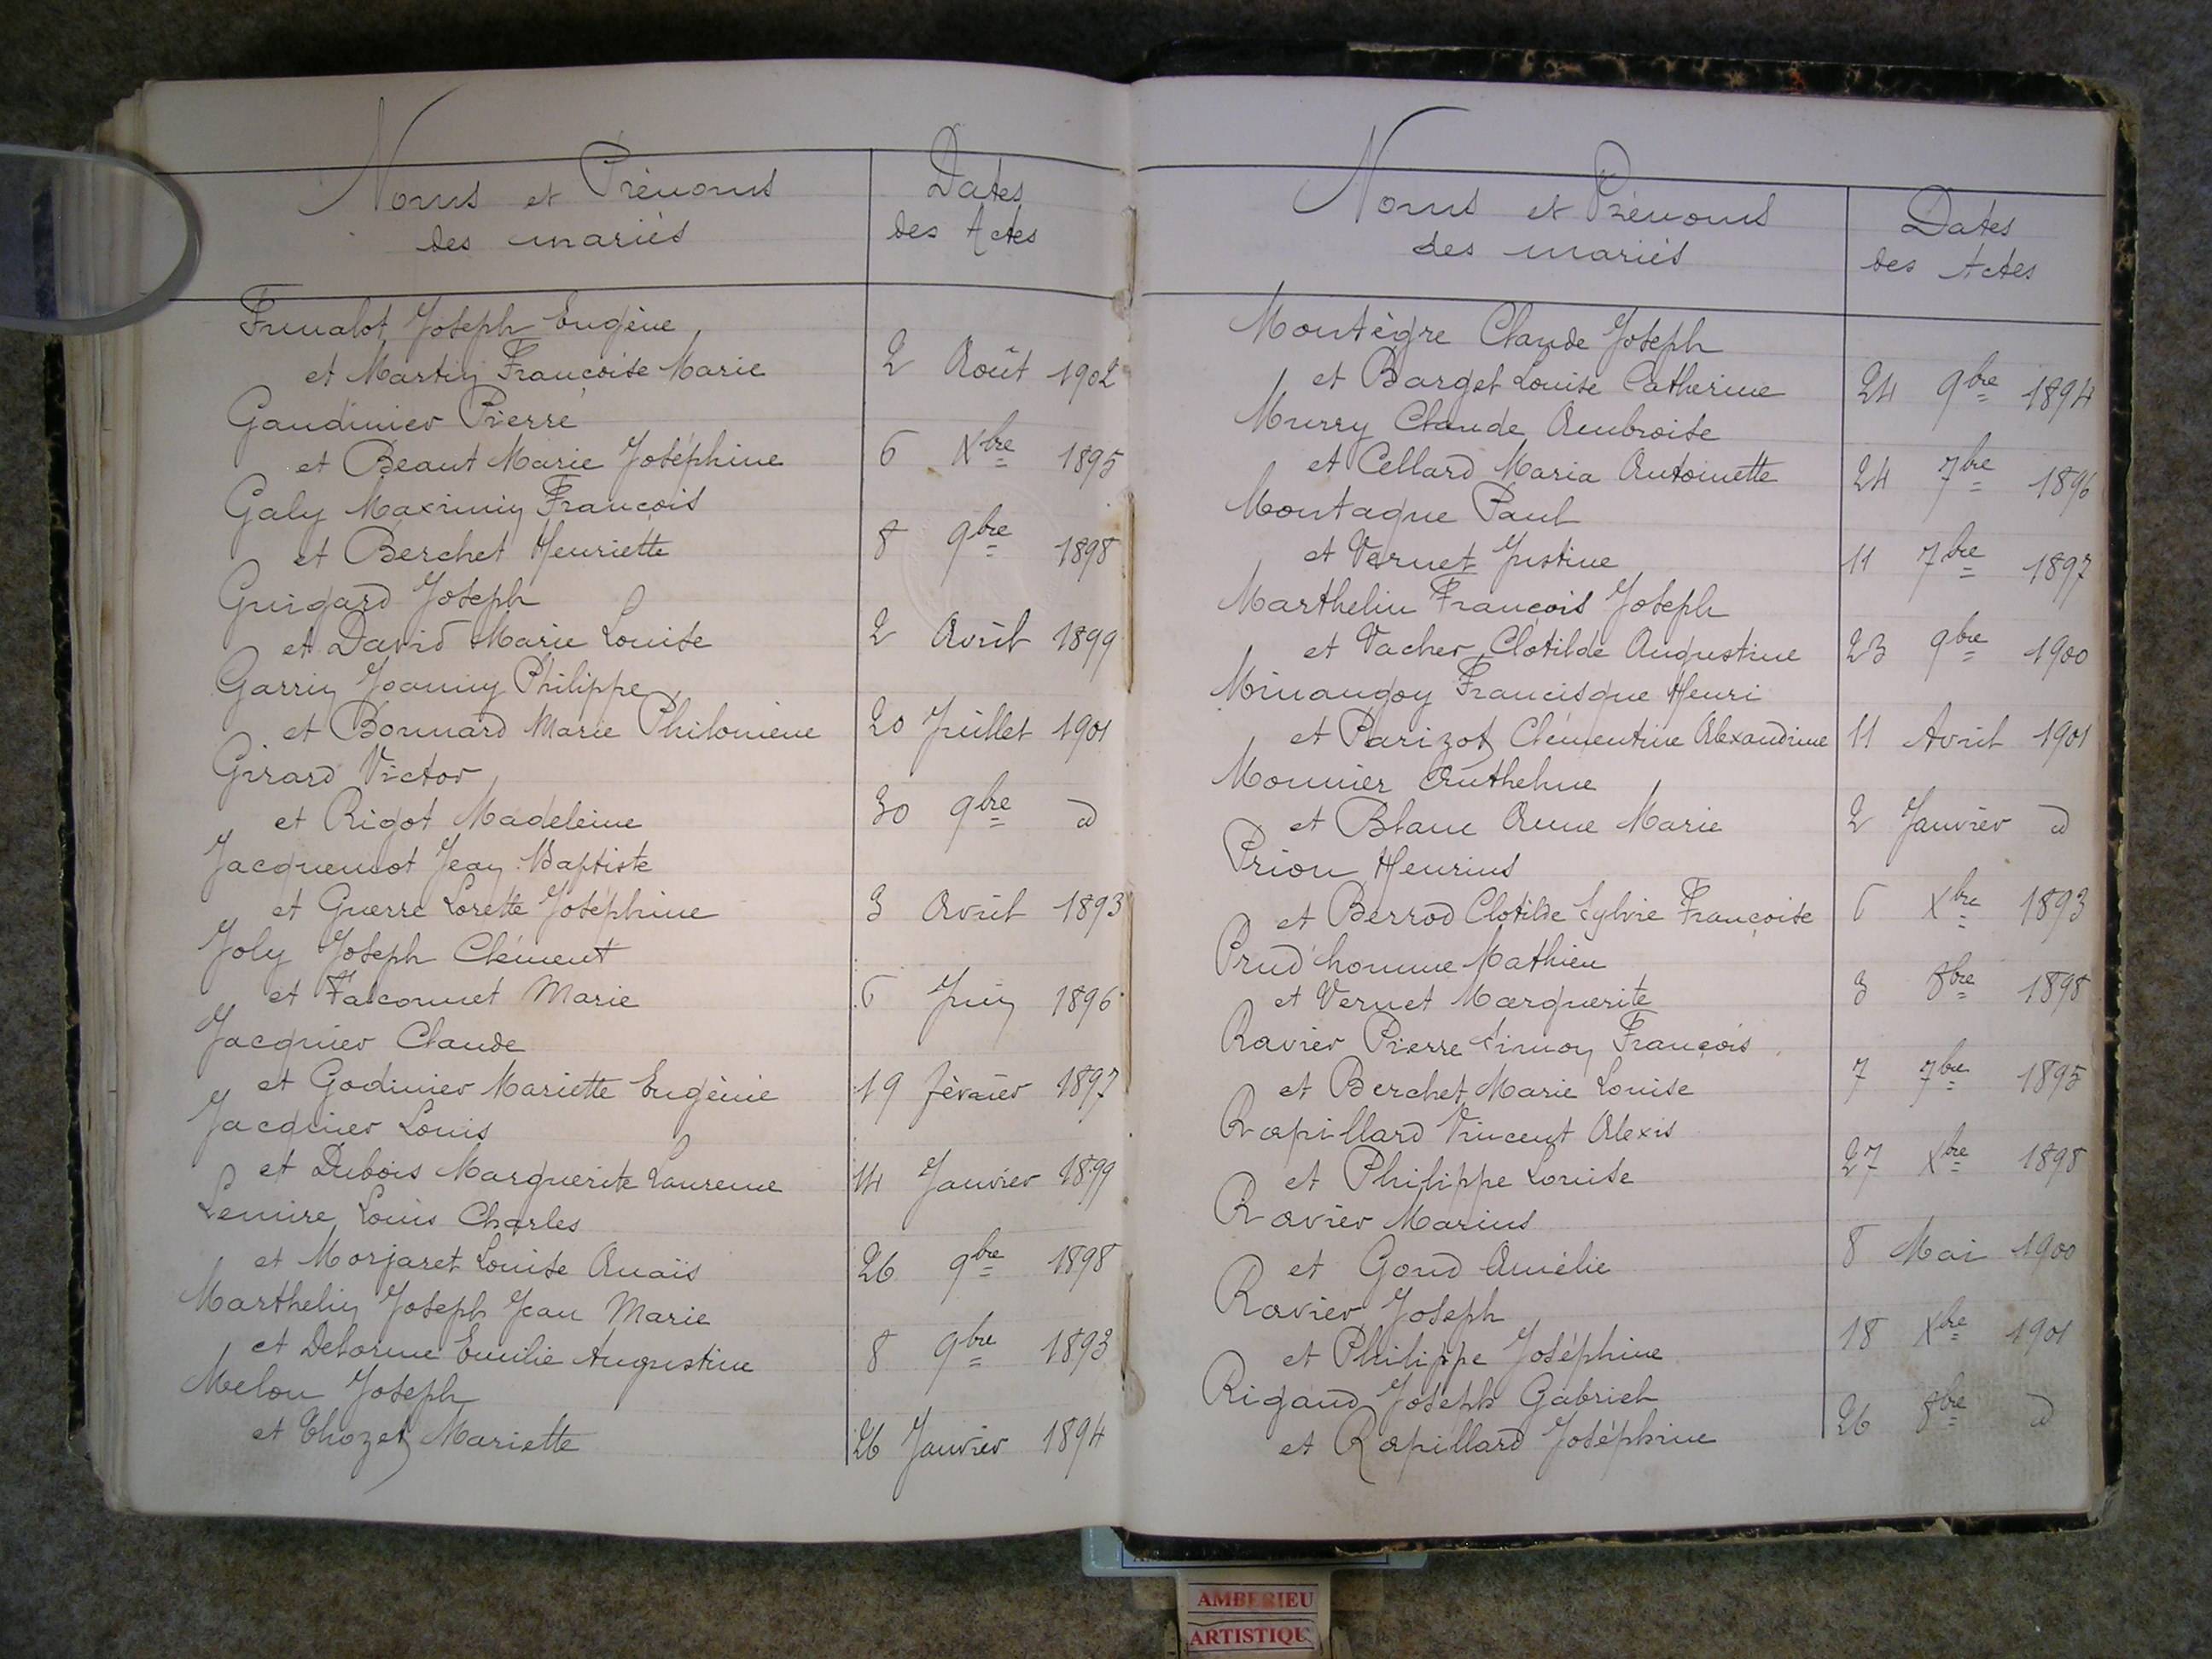 Noms et Prénoms
des mariés
Dates
des Actes
Joseph Eugène
et Martin Françoise Marie 2 Août 1902
Gaudinier Pierre
et Béaut Marie Joséphine 6 Xbre 1895
Galy Maximin François
et Berchet Henriette 8 9bre 1898
Guigard Joseph
et David Marie Louise 2 Avril 1899
Garrin Joanny Philippe
et Bonnard Marie Philomène 20 Juillet 1901
Girard Victor
et Rigot Madeleine 30 9bre d
Jacquemot Jean Baptiste
et Guerre Lorette Joséphine 3 Avril 1893
Joly Joseph Clément
et Falconnet Marie 6 Juin 1896
Jacquier Claude
et Godinier Mariette Eugénie 19 février 1897
Jacquier Louis
et Dubois Marguerite Laurence 14 Janvier 1899
Lemire Louis Charles
et Morjaret Louise Anaïs 26 9bre 1898
Marthelin Joseph Jean Marie
et Delorme Emilie Augustine 8 9bre 1893
Melon Joseph
et Chozet Mariette 26 Janvier 1894
Noms et Prénoms
des mariés
Dates
des Actes
Montègre Claude Joseph
et Barget Louise Catherine 24 9bre 1894
Murry Claude Ambroise
et Cellard Maria Antoinette 24 7bre 1896
Montagne Paul
et Vernet Justine 11 7bre 1897
Marthelin François Joseph
et Vacher Clotilde Augustine 23 9bre 1900
Minangoy Francisque Henri
et Parizot Clémentine Alexandrine 11 Avril 1901
Monnier Anthelme
et Blanc Anne Marie 2 Janvier d
Prion Henrius
et Berrod Clotilde Sylvie Françoise 6 Xbre 1893
Prud'homme Mathieu
et Vernet Marguerite 3 8bre 1898
Ravier Pierre Simon François
et Berchet Marie Louise 7 7bre 1895
Rapillard Vincent Alexis
et Philippe Louise 27 Xbre 1898
Ravier Marius
et Goud Amélie 8 Mai 1900
Ravier Joseph
et Philippe Joséphine 18 Xbre 1901
Rigaud Joseph Gabriel
et Rapillard Joséphine 26 8bre d
AMBERIEU
ARTISTIQU